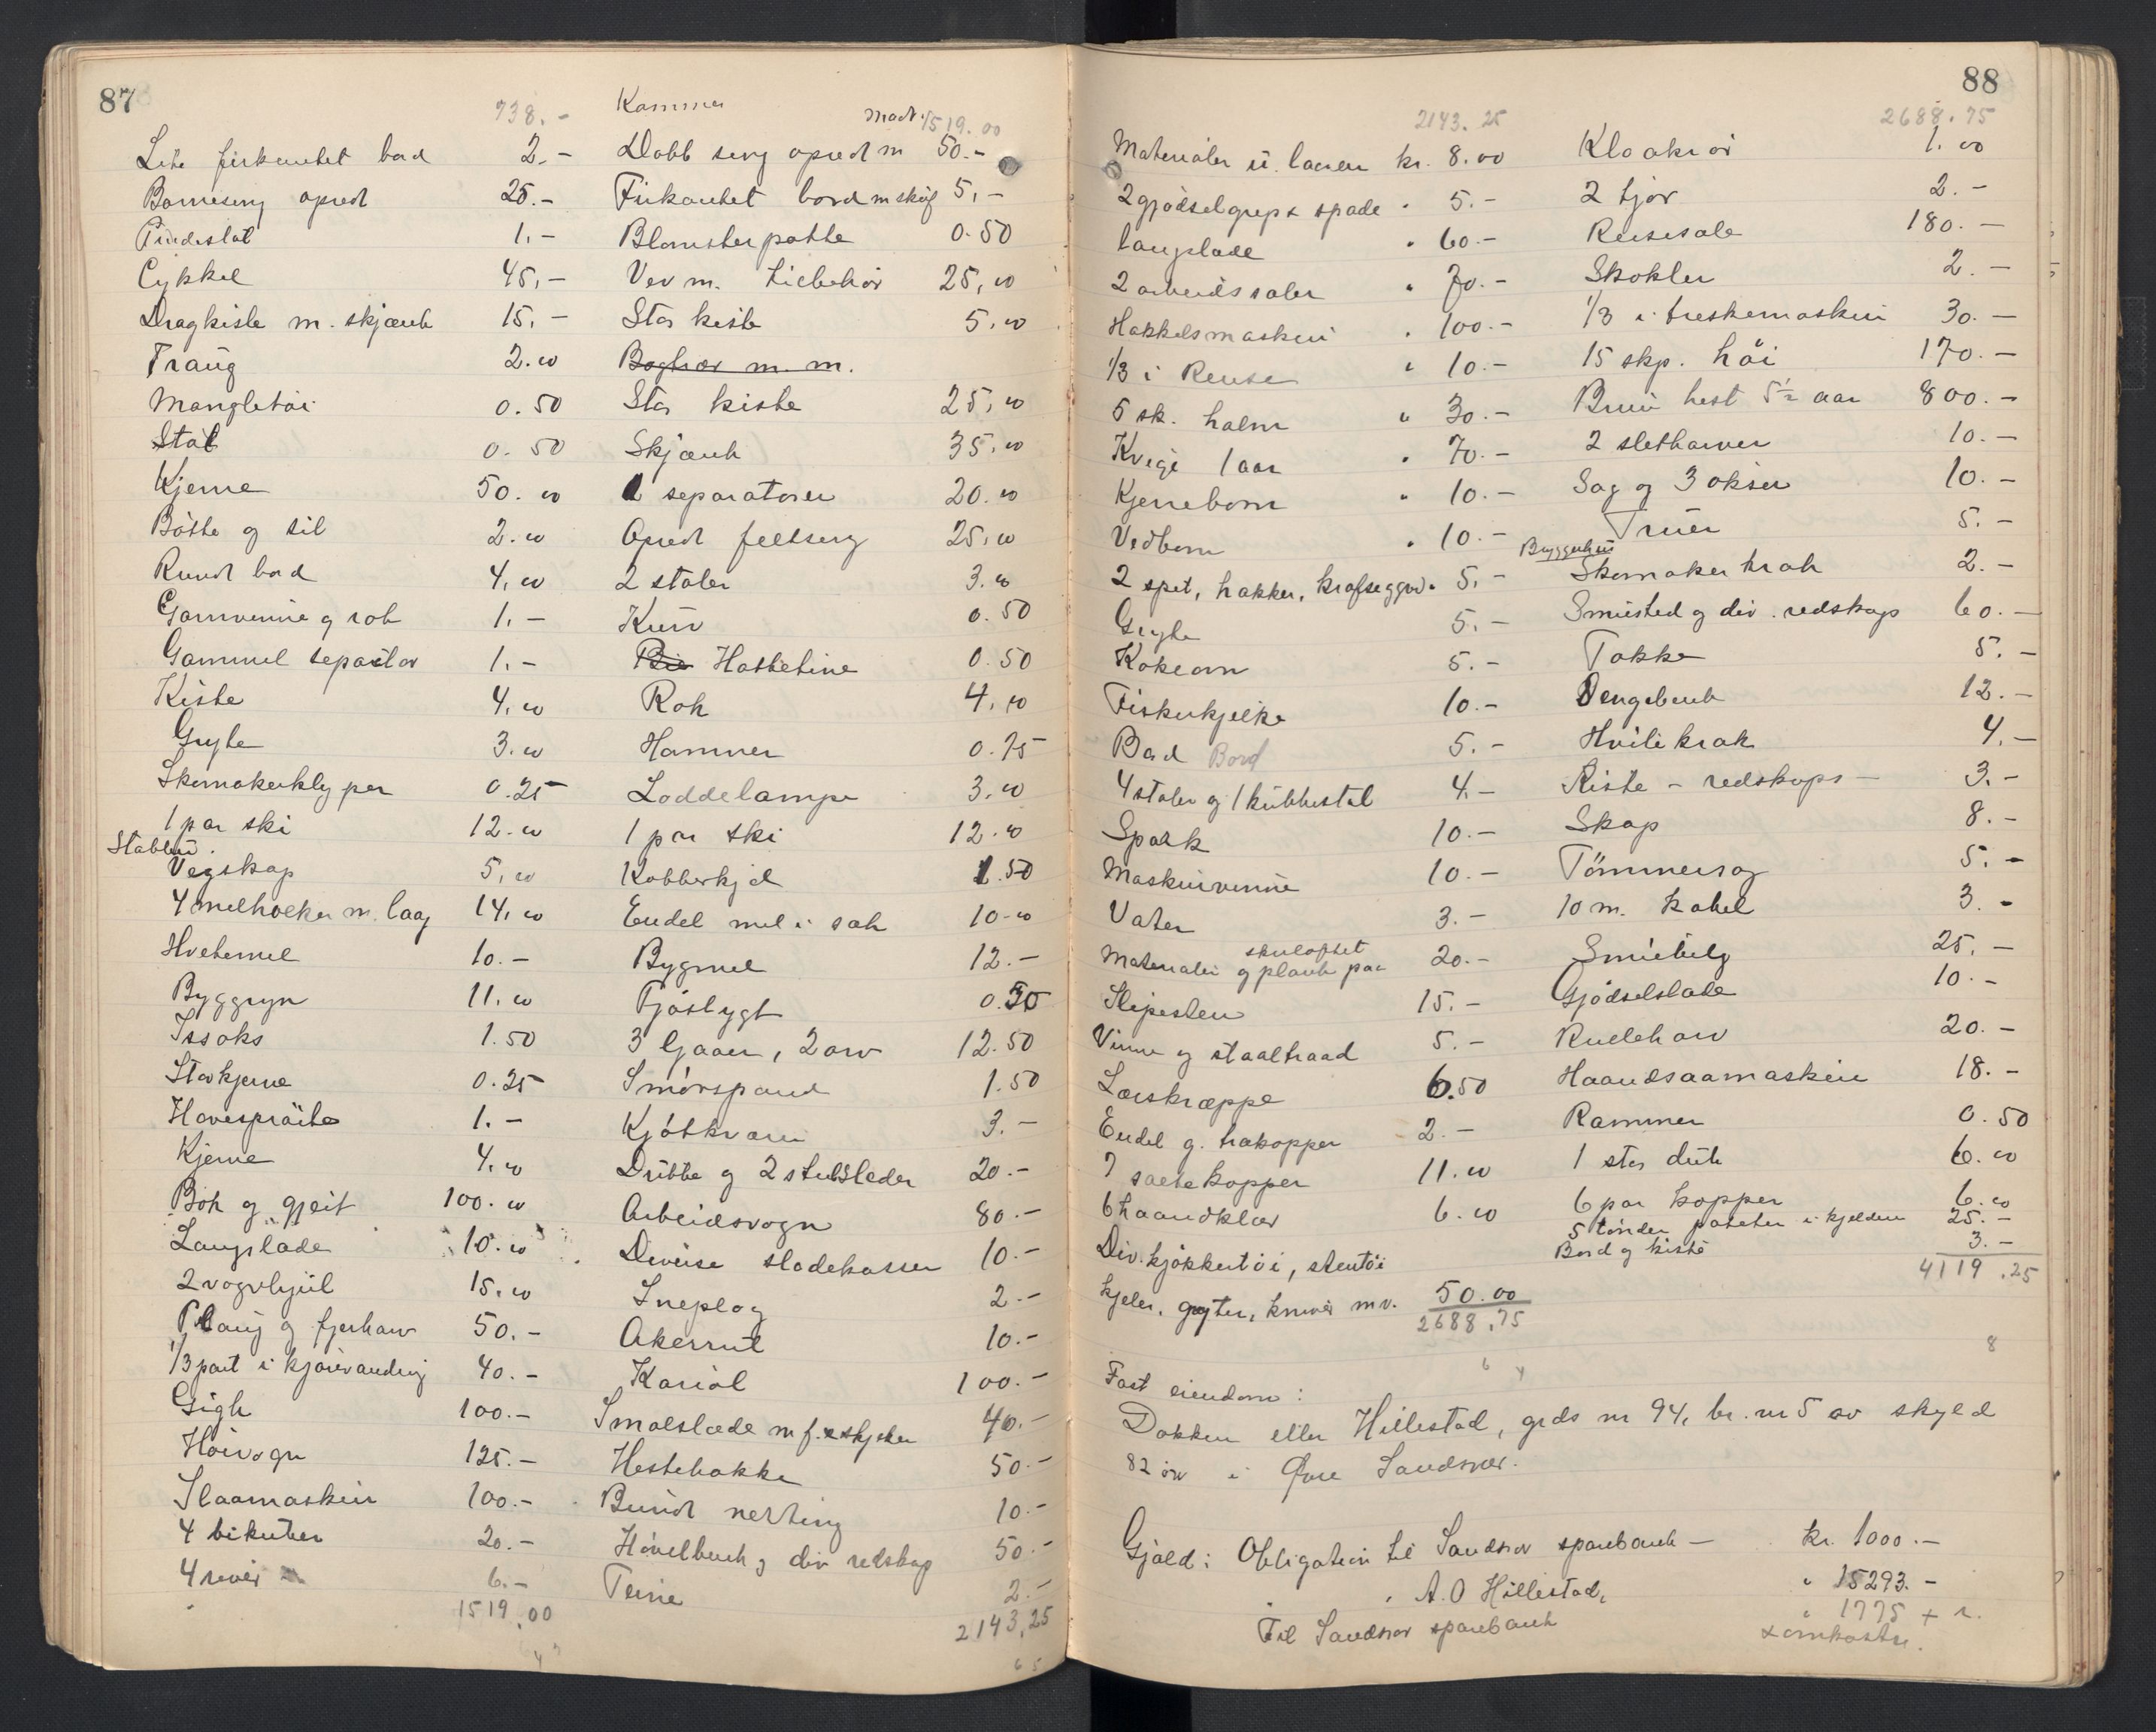 87
738.-
Lite firkantet bord 2.-
Barneseng opredt 25.-
Pindestol 1.-
Cykkel 45,-
Dragkiste m. skjænk 15.-
Traug 2.00
Mangletöi 0.50
Stol 0.50
Kjerne 50.00
Bötte og sil 2.00
Rundt bord 4,00
Garnvinne og rok 1.-
Gammel separator 1.-
Kiste 4,00
Gryte 3.00
Skomakerklyper 0.25
1 par ski 12.00
Stabbur.
Vegskap 5,00
4 melholker m. laag 14,00
Hvetemel 10.-
Byggryn 11.00
Issaks 1.50
Stavkjerne 0.25
Havespröite 1.-
Kjerne 4,00
Bok og gjeit 100.00
Langslade 10.00
2 vognhjul 15,00
Plaug og fjerharv 50.-
1/3 part i kjörevanding 40.-
Gigh 100.-
Höivogn 125.-
Slaamaskin 100.-
4 bikuber 20.-
4 river 6.-
1519,00
Kammer
madr. 1519.00
Dobb seng opredt m 50.-
Firkantet bord m skuf 5,-
Blomsterpotte 0.50
Vev m. tilbehör 25,00
Stor kiste 5,00
Boghær m. m.
Stor kiste 25,00
Skjænk 35,00
2 separatorer 20.00
Opredt feltseng 25,00
2 stoler 3.00
Kurv 0.50
Hattetine 0.50
Rok 4,00
Hammer 0.75
Loddelampe 3,00
1 par ski 12.00
Kobberkjel 1.50
Endel mel i sæk 10.00
Bygmel 12.-
Fjöslygt 0.50
3 ljaaer, 2 orv 12.50
Smörspand 1.50
Kjötkvern 3.-
Drætte og 2 stutsleder 20.-
Arbeidsvogn 80.-
Diverse sladekasser 10.-
Sneplog 2.-
Akerrul 10.-
Kariol 100.-
Smalslæde m f. 40.-
Hestehakke 50.-
Bundt netting 10.-
Hövelbenk og div redskap 50.-
Teine 2.-
2143,25
88
2143.25
Materialer u. laaven kr. 8.00
2 gjödselgrep & spade " 5.-
Langslade " 60.-
2 arbeidssaler " 70.-
Hakkelsmaskin " 100.-
1/3 i Rense " 10.-
5 sk. halm " 30.-
Kvige 1 aar " 70.-
Kjerrebom " 10.-
Vedbom " 10.-
2 spet, hakker, krafse " 5.-
Gryte 5.-
Kokeovn 5.-
Fiskerkjelke 10.-
Bad Bord 5.-
4 stoler og 1 kubbestol 4.-
Spark 10.-
Maskinvinne 10.-
Vater 3.-
Materialer og plank paa skuloftet 20.-
Slipesten 15.-
Vinne og staaltraad 5.-
Lærskræppe 6.50
Endel g. trækopper 2.-
7 saetekopper 11.00
6 haandklær 6.00
Div. kjökkentöi, stentöi
kjeler, gryter, kniver mv. 50.00
2688,75
2688.75
Kloakrör 1.00
2 tjor 2.-
Reisesale 180.-
Skokler 2.-
1/3 i treskemaskin 30.-
15 skp. höi 170.-
Brun hest 5½ aar 800.-
2 sletharver 10.-
Sag og 3 økser 10.-
Truer 5.-
Bryggerhus
Skomakerkrak 2.-
Smiested og div. redskap 60.-
Takke 5.-
Dengebenk 12.-
Hvilekrak 4.-
Kiste - redskaps - 3.-
Skap 8.-
Tömmersag 5.-
10 m. kabel 3.-
Smiebelg 25.-
Gjödselslade 10.-
Rulleharv 20.-
Haandsaamaskin 18.-
Rammer 0.50
1 stor duk 6.00
6 par kopper 6.00
5 tönder poteter i kjelderen 25.-
Bord og kiste 3.-
4119,25
Fast eiendom:
Dokken eller Hillestad, grds nr 94, br. nr 5 av skyld
82 öre i Øvre Sandsvær.
Gjæld: Obligation til Sandsvær sparebank - kr. 1000.-
" A. O Hillestad, " 15293.-
Til Sandsvær sparebank " 1775 + r.
& omkostn.